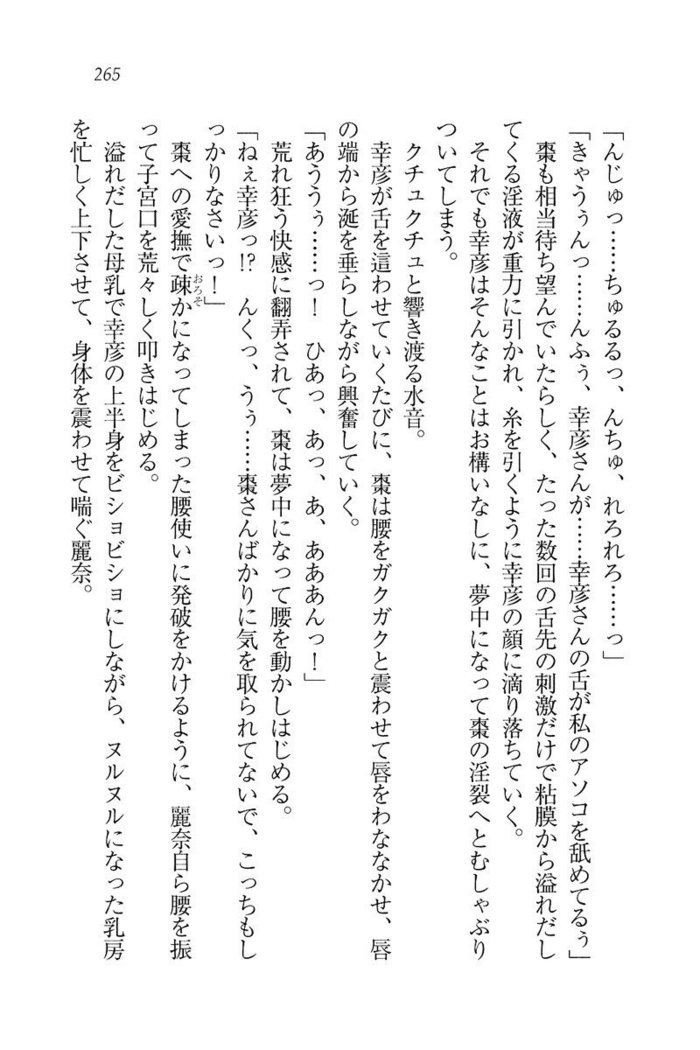 265
「んじゅっ……ちゅるるっ、んちゅ、れろれろ……っ」
「きゃうぅんっ……んふぅ、幸彦さんが……幸彦さんの舌が私のアソコを舐めてるぅ」
棗も相当待ち望んでいたらしく、たった数回の舌先の刺激だけで粘膜から溢れだし
てくる淫液が重力に引かれ、糸を引くように幸彦の顔に滴り落ちていく。
それでも幸彦はそんなことはお構いなしに、夢中になって棗の淫裂へとむしゃぶり
ついてしまう。
クチュクチュと響き渡る水音。
幸彦が舌を這わせていくたびに、棗は腰をガクガクと震わせて唇をわななかせ、唇
の端から涎を垂らしながら興奮していく。
「あううぅ……っ！　ひあっ、あっ、あ、あああんっ！」
荒れ狂う快感に翻弄されて、棗は夢中になって腰を動かしはじめる。
「ねぇ幸彦っ!?　んくっ、うぅ……棗さんばかりに気を取られてないで、こっちもし
っかりなさいっ！」
棗への愛撫で疎おろそかになってしまった腰使いに発破をかけるように、麗奈自ら腰を振
って子宮口を荒々しく叩きはじめる。
溢れだした母乳で幸彦の上半身をビショビショにしながら、ヌルヌルになった乳房
を忙しく上下させて、身体を震わせて喘ぐ麗奈。